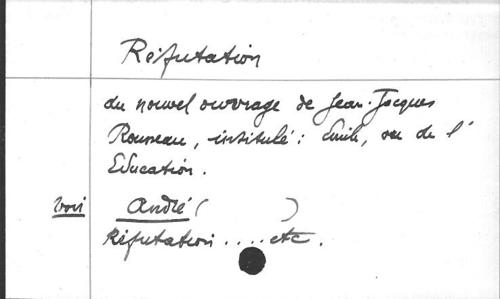 Réfutation
du nouvel ouvrage de Jean-Jacques
Rousseau, intitulé : Emile, ou de l'
Education.
Voir André ( )
Réfutation .... etc.